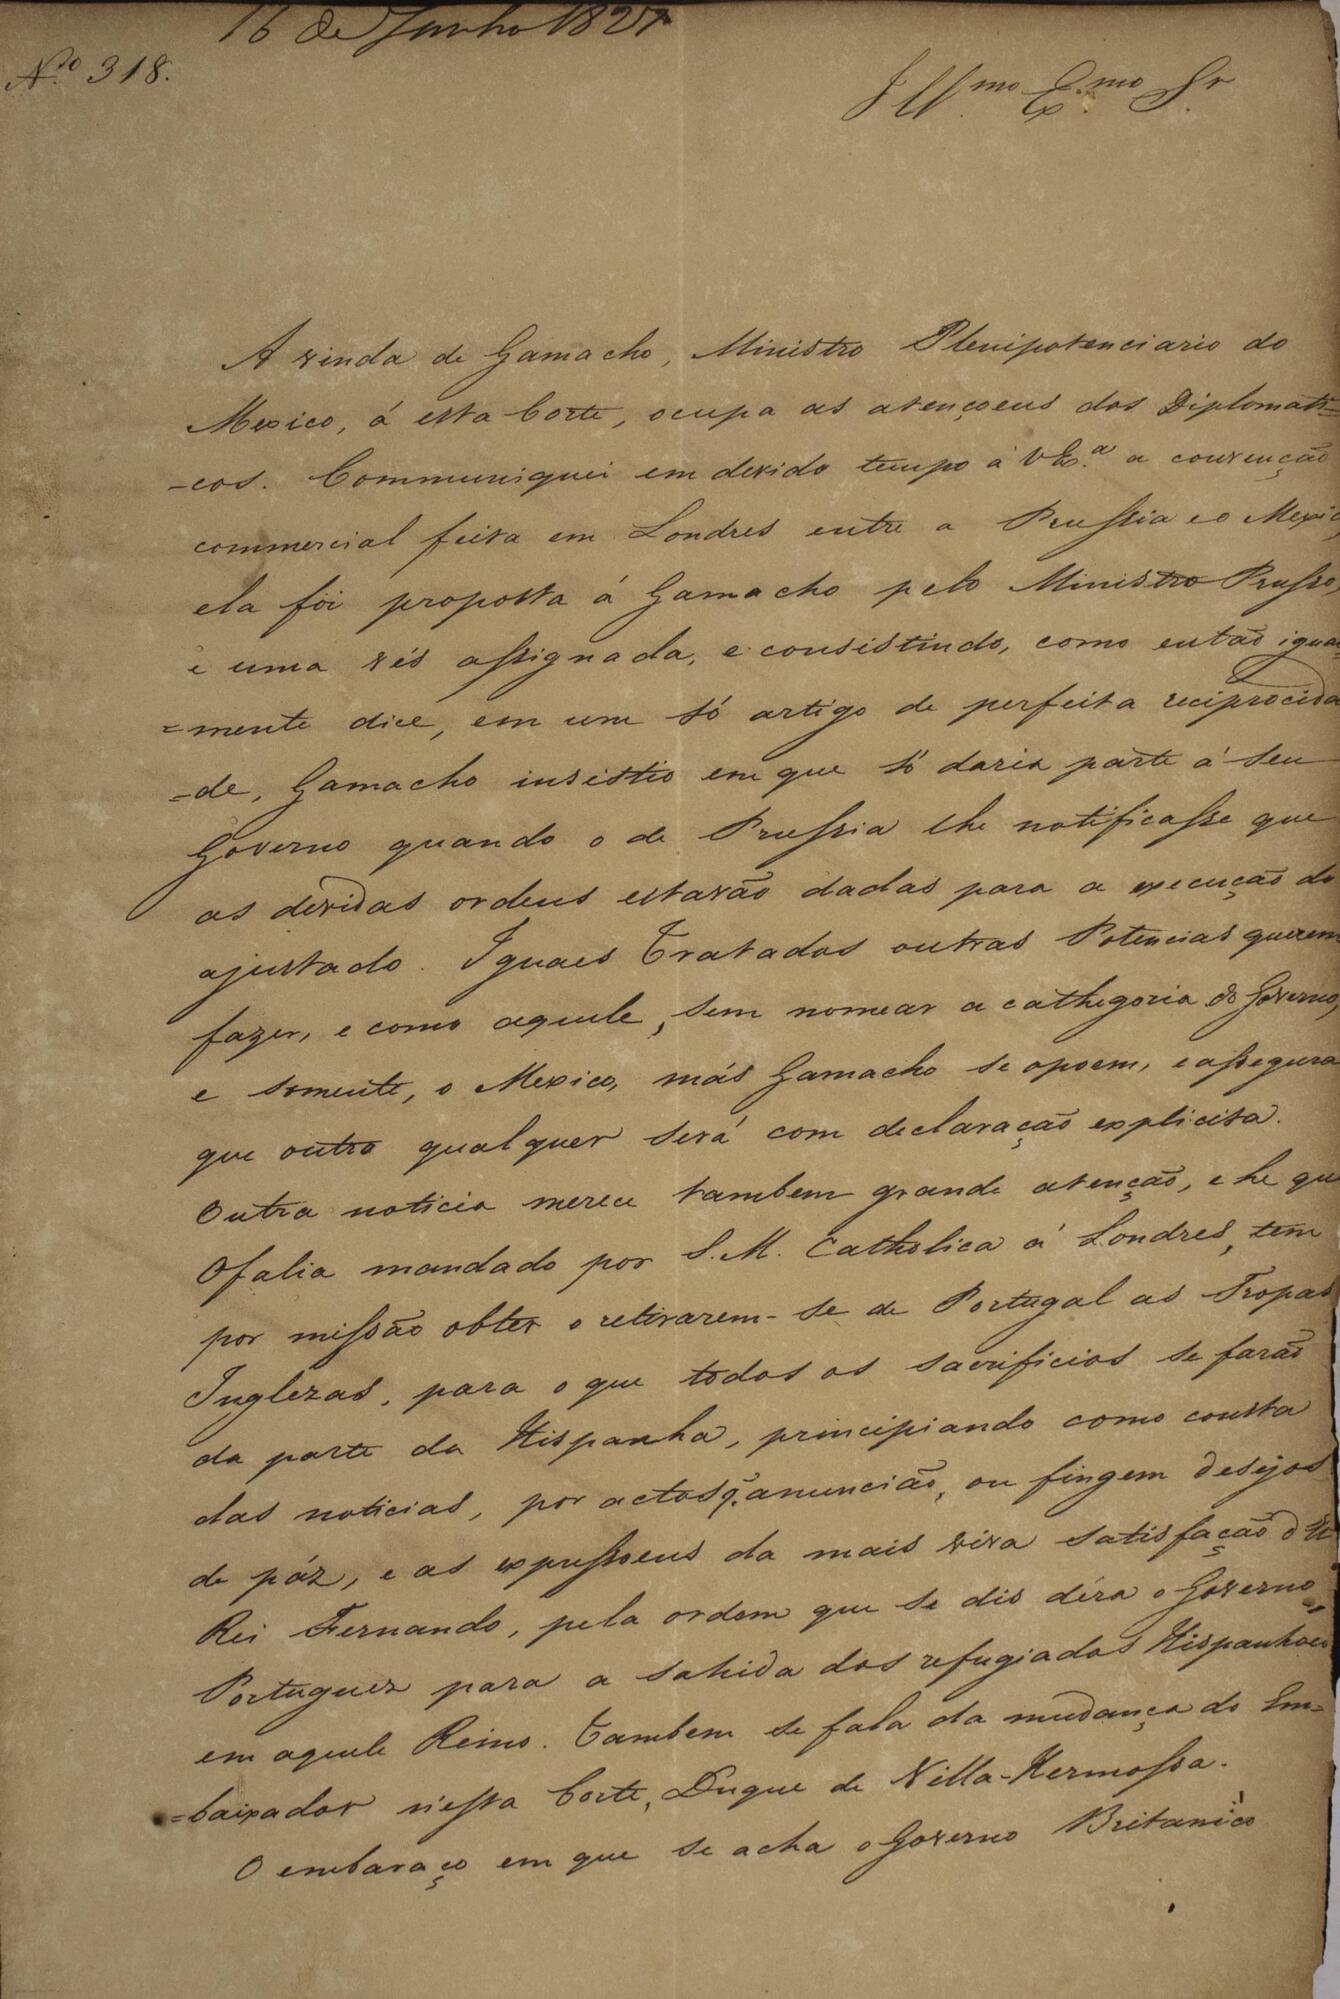 16 de Junho 1827
N.º 318.
Ill.mo Ex.mo Sr
A vinda de Gamacho, Ministro Plenipotenciario do
Mexico, á esta Corte, ocupa as atençoens dos Diplomati=
-cos. Communiquei em devido tempo á VEx.ª a convenção
commercial feita em Londres entre a Prussia e o Mexico,
ela foi proposta á Gamacho pelo Ministro Prusso,
e uma vés assignada, e consistindo, como então igual=
=mente dice, em um só artigo de perfeita reciprocida
=de, Gamacho insistio em que só daria parte á seu
Governo quando o de Prussia lhe notificasse que
as devidas ordens estavão dadas para a execução do
ajustado. Iguaes Tratados outras Potencias querem
fazer, e como aquele, sem nomear a cathegoria do Governo,
e somente, o Mexico, más Gamacho se opoem, e assegura
que outro qualquer será com declaração explicita.
Outra noticia merece tambem grande atenção, e he que
Ofalia mandado por S.M. Catholica á Londres, tem
por missão obter o retirarem-se de Portugal as Tropas
Inglezas, para o que todos os sacrificios se farão
da parte da Hispanha, principiando como consta
das noticias, por actos q̃. anuncião, ou fingem desejos
de páz, e as expressoens da mais viva satisfação d'El
Rei Fernando, pela ordem que se dis déra o Governo
Portuguez para a sahida dos refugiados Hispanhoes
em aquele Reino. Tambem se fala da mudança do Em=
=baixador n'esta Corte, Duque de Villa-Hermossa.
O embaraço em que se acha o Governo Britanico